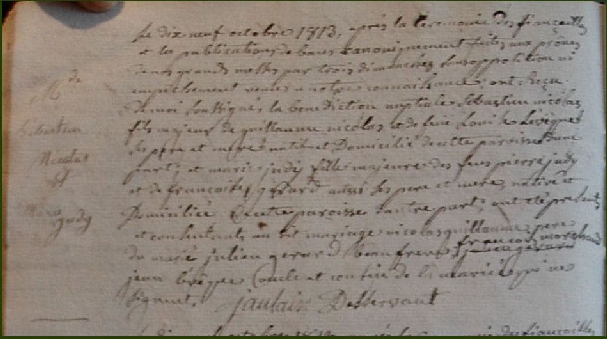 Le dix neuf octobre 1813, après la ceremonie des fiancailles
et les publications de bans canoniquement faites aux prônes
de nos grandes messes par trois dimanches sans opposition ni
empêchement venus a notre connaissance, ont reçu
de moi soussigné la benediction nuptiale Sebastien nicolas
fils majeur de guillaume nicolas et de feue Louise
ses pere et mere natif et Domicilié de cette paroisse d'une
part, et marie judy fille majeure des feus pierre judy
et de francoise gerard aussi ses pere et mere native et
Domiciliée de cette paroisse d'autre part, ont été présents
et consentants au dit mariage nicolas guillaume pere
du marié julien gerard beaufrere, francois marchand
jean oncle et de la mariée qui ne
signent. jaulain Desservant
Mge de
Sebastien
Nicolas
et
marie
judy